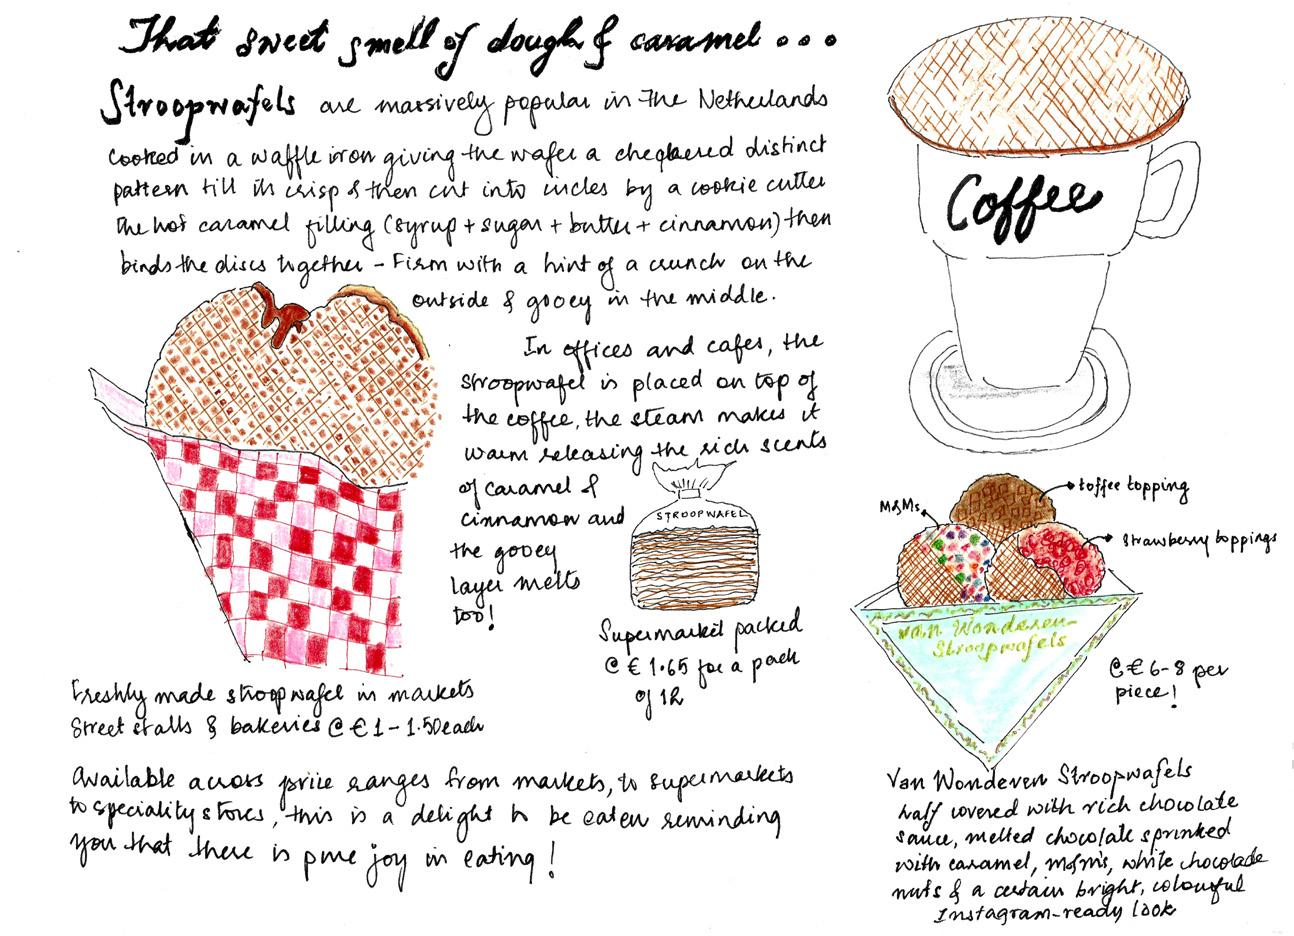 That sweet smell of dough & caramel...
Stroopwafels are massively popular in the Netherlands
Cooked in a waffle iron giving the wafer a cheqkered distinct
pattern till its crisp & then cut into circles by a cookie cutter
The hot caramel filling (syrup + sugar + butter + cinnamon) then
binds the discs together - Firm with a hint of a crunch on the
outside & gooey in the middle.
In offices and cafes, the
stroopwafel is placed on top of
the coffee, the steam makes it
warm releasing the rich scents
of caramel &
cinnamon and
the gooey
layer melts
too!
STROOPWAFEL
Supermarket packed
@ € 1.65 for a pack
of 12
Freshly made stroopwafel in markets
Street stalls & bakeries @ € 1 - 1.50 each
Available across price ranges from markets, to supermarkets
to speciality stores, this is a delight to be eaten reminding
you that there is pure joy in eating!
Coffee
toffee topping
M&Ms
Strawberry toppings
van Wonderen
Stroopwafels
@ € 6-8 per
piece!
Van Wonderen Stroopwafels
half covered with rich chocolate
sauce, melted chocolate sprinked
with caramel, m&m's, white chocolade
nuts & a certain bright, colourful
Instagram-ready look